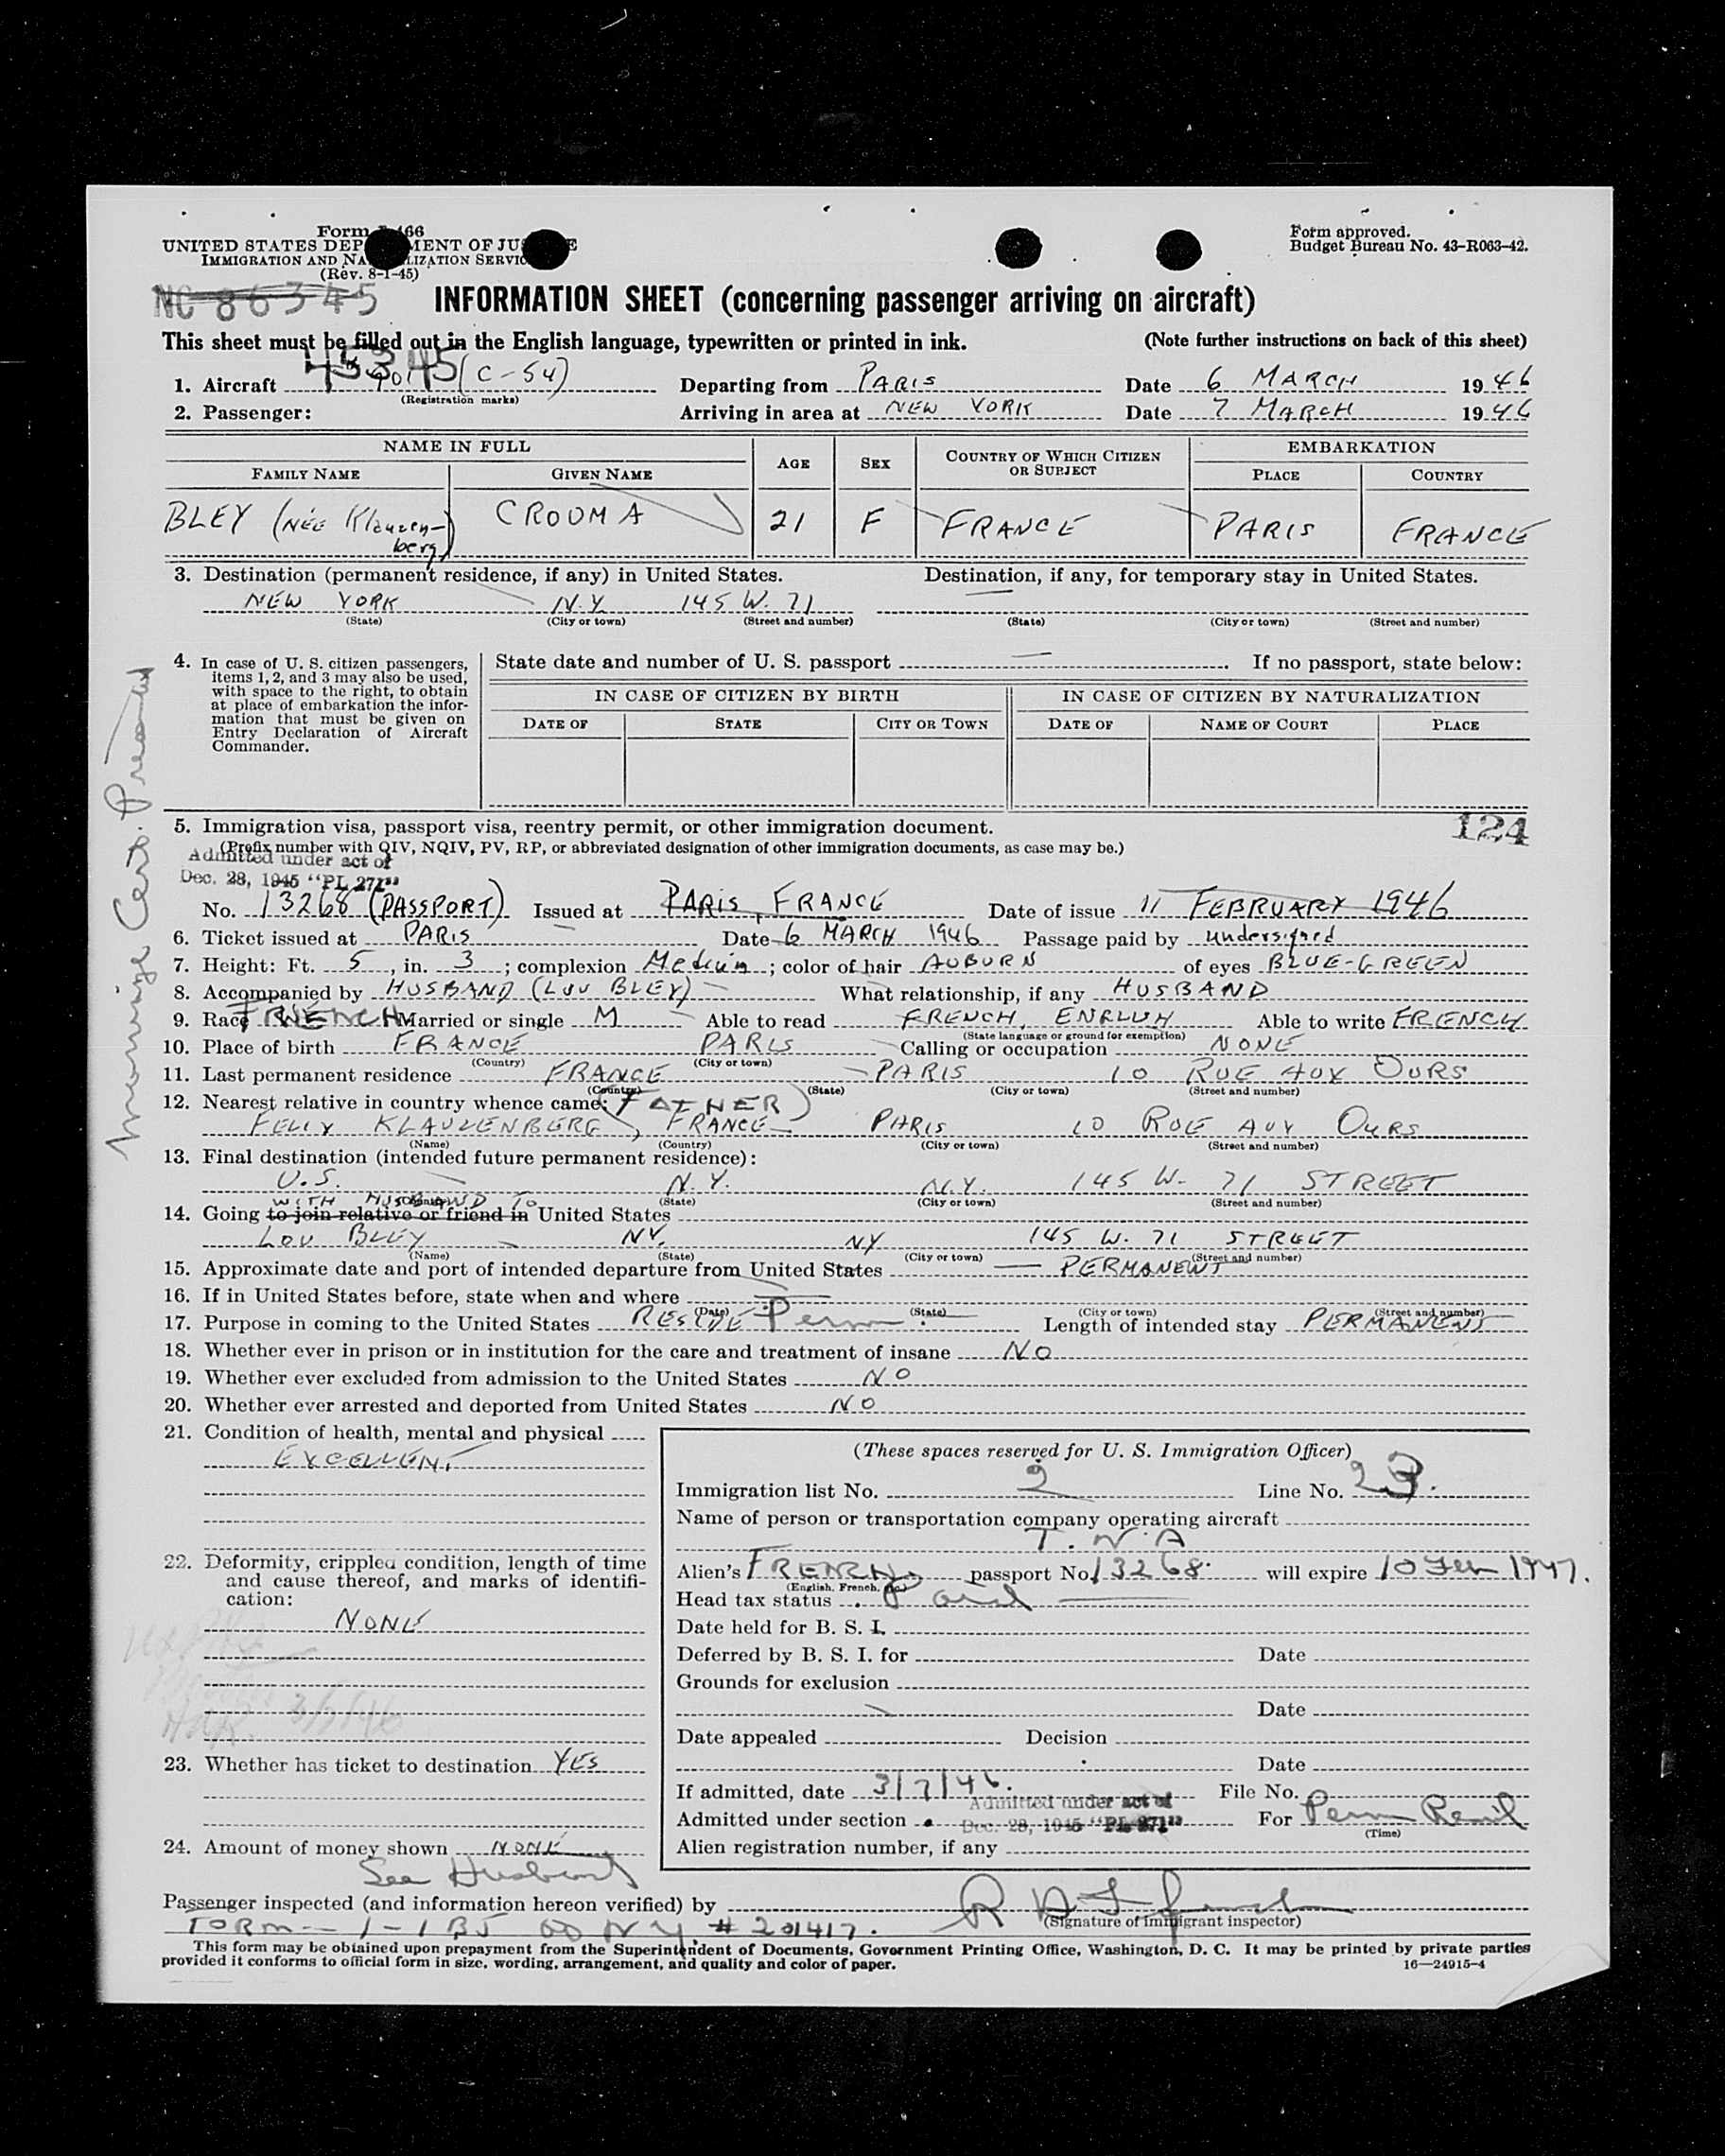 Form I-466
UNITED STATES DEPARTMENT OF JUSTICE
IMMIGRATION AND NATURALIZATION SERVICE
(Rev. 8-1-45)
Form approved.
Budget Bureau No. 43-R063-42.
NC 86345
INFORMATION SHEET (concerning passenger arriving on aircraft)
This sheet must be filled out in the English language, typewritten or printed in ink. (Note further instructions on back of this sheet)
45345
1. Aircraft (C-54) Departing from PARIS Date 6 MARCH 1946
(Registration marks)
2. Passenger: Arriving in area at NEW YORK Date 7 MARCH 1946
NAME IN FULL AGE SEX COUNTRY OF WHICH CITIZEN OR SUBJECT EMBARKATION
FAMILY NAME GIVEN NAME PLACE COUNTRY
BLEY (NÉE Klauzenberg) CROUMA 21 F FRANCE PARIS FRANCE
3. Destination (permanent residence, if any) in United States. Destination, if any, for temporary stay in United States.
NEW YORK N.Y. 145 W. 71
(State) (City or town) (Street and number) (State) (City or town) (Street and number)
4. In case of U. S. citizen passengers, items 1, 2, and 3 may also be used, with space to the right, to obtain at place of embarkation the information that must be given on Entry Declaration of Aircraft Commander.
State date and number of U. S. passport — If no passport, state below:
IN CASE OF CITIZEN BY BIRTH IN CASE OF CITIZEN BY NATURALIZATION
DATE OF STATE CITY OR TOWN DATE OF NAME OF COURT PLACE
Marriage Cert. Presented
124
5. Immigration visa, passport visa, reentry permit, or other immigration document.
(Prefix number with QIV, NQIV, PV, RP, or abbreviated designation of other immigration documents, as case may be.)
Admitted under act of
Dec. 28, 1945 "PL 271"
No. 13268 (PASSPORT) Issued at PARIS, FRANCE Date of issue 11 FEBRUARY 1946
6. Ticket issued at PARIS Date 6 MARCH 1946 Passage paid by undersigned
7. Height: Ft. 5, in. 3; complexion Medium; color of hair AUBURN of eyes BLUE-GREEN
8. Accompanied by HUSBAND (LOU BLEY) What relationship, if any HUSBAND
9. Race FRENCH Married or single M Able to read FRENCH, ENGLISH Able to write FRENCH
(State language or ground for exemption)
10. Place of birth FRANCE PARIS Calling or occupation NONE
(Country) (City or town)
11. Last permanent residence FRANCE PARIS 10 RUE AUX OURS
(Country) (State) (City or town) (Street and number)
12. Nearest relative in country whence came: (FATHER)
FELIX KLAUZENBERG, FRANCE PARIS 10 RUE AUX OURS
(Name) (Country) (City or town) (Street and number)
13. Final destination (intended future permanent residence):
U.S. N.Y. N.Y. 145 W. 71 STREET
(Country) (State) (City or town) (Street and number)
WITH HUSBAND TO
14. Going to join relative or friend in United States
LOU BLEY NY. NY 145 W. 71 STREET
(Name) (State) (City or town) (Street and number)
15. Approximate date and port of intended departure from United States — PERMANENT
16. If in United States before, state when and where —
(Date) (State) (City or town) (Street and number)
17. Purpose in coming to the United States RESIDE Perm. Length of intended stay PERMANENT
18. Whether ever in prison or in institution for the care and treatment of insane NO
19. Whether ever excluded from admission to the United States NO
20. Whether ever arrested and deported from United States NO
21. Condition of health, mental and physical
EXCELLENT
22. Deformity, crippled condition, length of time and cause thereof, and marks of identification:
NONE
3/5/46
23. Whether has ticket to destination YES
24. Amount of money shown NONE
See Husband
(These spaces reserved for U. S. Immigration Officer)
Immigration list No. 2 Line No. 23.
Name of person or transportation company operating aircraft
T.W.A
Alien's FRENCH passport No. 13268. will expire 10 Feb 1947.
(English, French, etc.)
Head tax status Paid
Date held for B. S. I.
Deferred by B. S. I. for Date
Grounds for exclusion
Date
Date appealed Decision
Date
If admitted, date 3/7/46. File No.
Admitted under act of
Admitted under section Dec. 28, 1945 "PL 271" For Perm Resid
(Time)
Alien registration number, if any
Passenger inspected (and information hereon verified) by
(Signature of immigrant inspector)
FORM - I-1 # 201417.
This form may be obtained upon prepayment from the Superintendent of Documents, Government Printing Office, Washington, D. C. It may be printed by private parties
provided it conforms to official form in size, wording, arrangement, and quality and color of paper. 16—24915-4